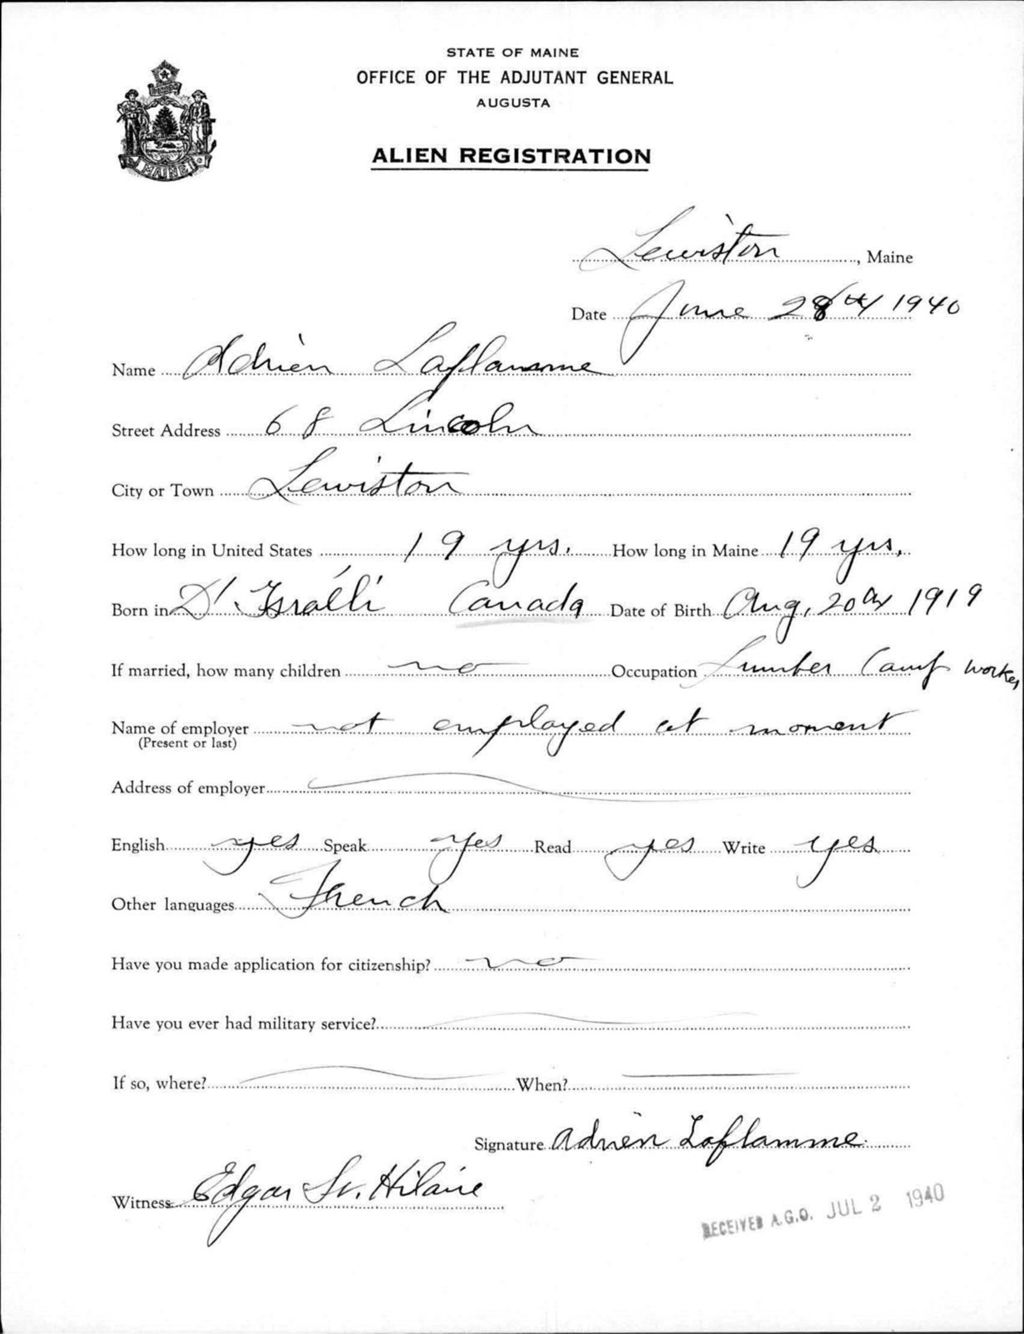 STATE OF MAINE
OFFICE OF THE ADJUTANT GENERAL
AUGUSTA
ALIEN REGISTRATION
MAINE
Lewiston, Maine
Date June 28th 1940
Name Adrien Laflamme
Street Address 68 Lincoln
City or Town Lewiston
How long in United States 19 yrs. How long in Maine 19 yrs.
Born in D'Israëli Canada Date of Birth Aug. 20th 1919
If married, how many children no Occupation Lumber Camp worker
Name of employer not employed at moment
(Present or last)
Address of employer
English yes Speak yes Read yes Write yes
Other languages French
Have you made application for citizenship? no
Have you ever had military service?
If so, where? When?
Signature Adrien Laflamme
Witness Edgar St. Hilaire
RECEIVED A.G.O. JUL 2 1940